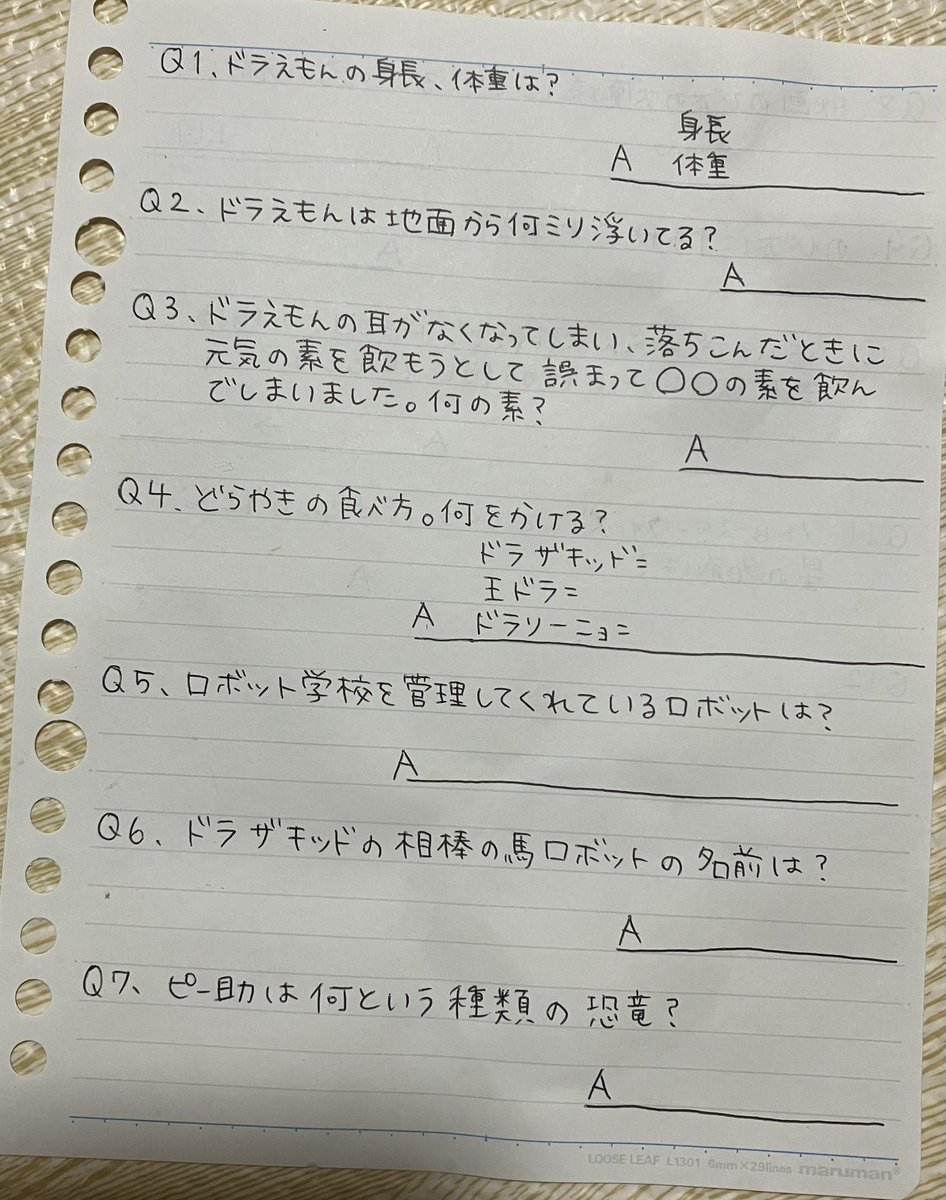 Q1、ドラえもんの身長、体重は?
身長
A 体重
Q2、ドラえもんは地面から何ミリ浮いてる?
A
Q3、ドラえもんの耳がなくなってしまい、落ちこんだときに
元気の素を飲もうとして誤まって〇〇の素を飲ん
でしまいました。何の素?
A
Q4、どらやきの食べ方。何をかける?
ドラザキッド=
王ドラ=
A ドラリーニョ=
Q5、ロボット学校を管理してくれているロボットは?
A
Q6、ドラザキッドの相棒の馬ロボットの名前は?
A
Q7、ピー助は何という種類の恐竜?
A
LOOSE LEAF L1301 6mm×29lines maruman